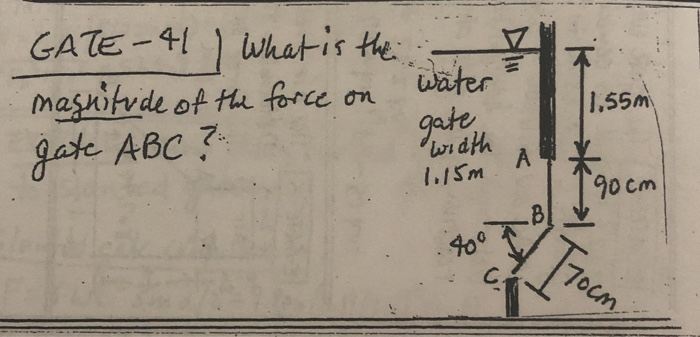 GATE-41 | What is the
magnitude of the force on
gate ABC?
water
gate
width
1.15m
A
1.55m
90cm
B
40°
C
70cm